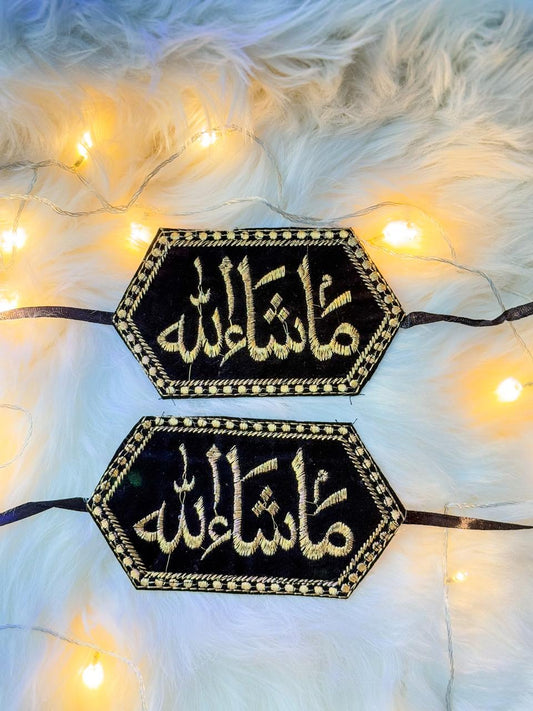 مَا شَاءَ اللّٰه
مَا شَاءَ اللّٰه